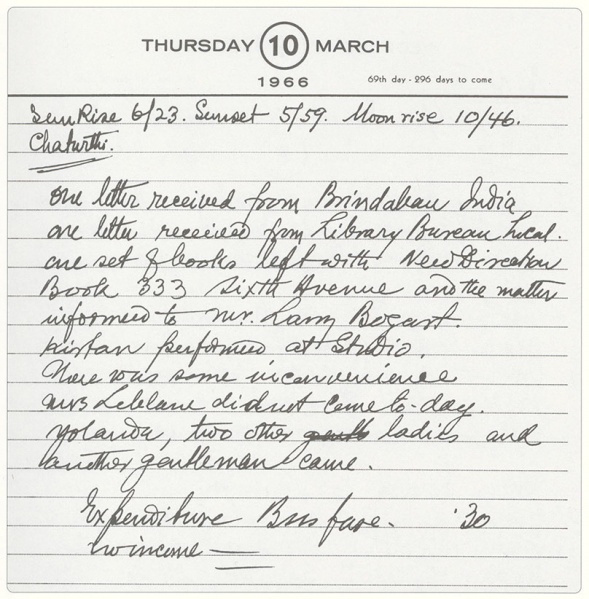 THURSDAY 10 MARCH
1966
69th day - 296 days to come
Sun Rise 6/23. Sunset 5/59. Moon rise 10/46.
Chaturthi.
one letter received from Brindaban India
one letter received from Library Bureau Local.
one set of books left with Need Direction
Book 333 Sixth Avenue and the matter
informed to Mr. Larry Bogart.
Kirtan performed at Studio.
There was some inconvenience
Mrs Leblanc did not come to-day.
Yolanda, two other ladies and
another gentleman came.
Expenditure Bus fare. '30
no income —